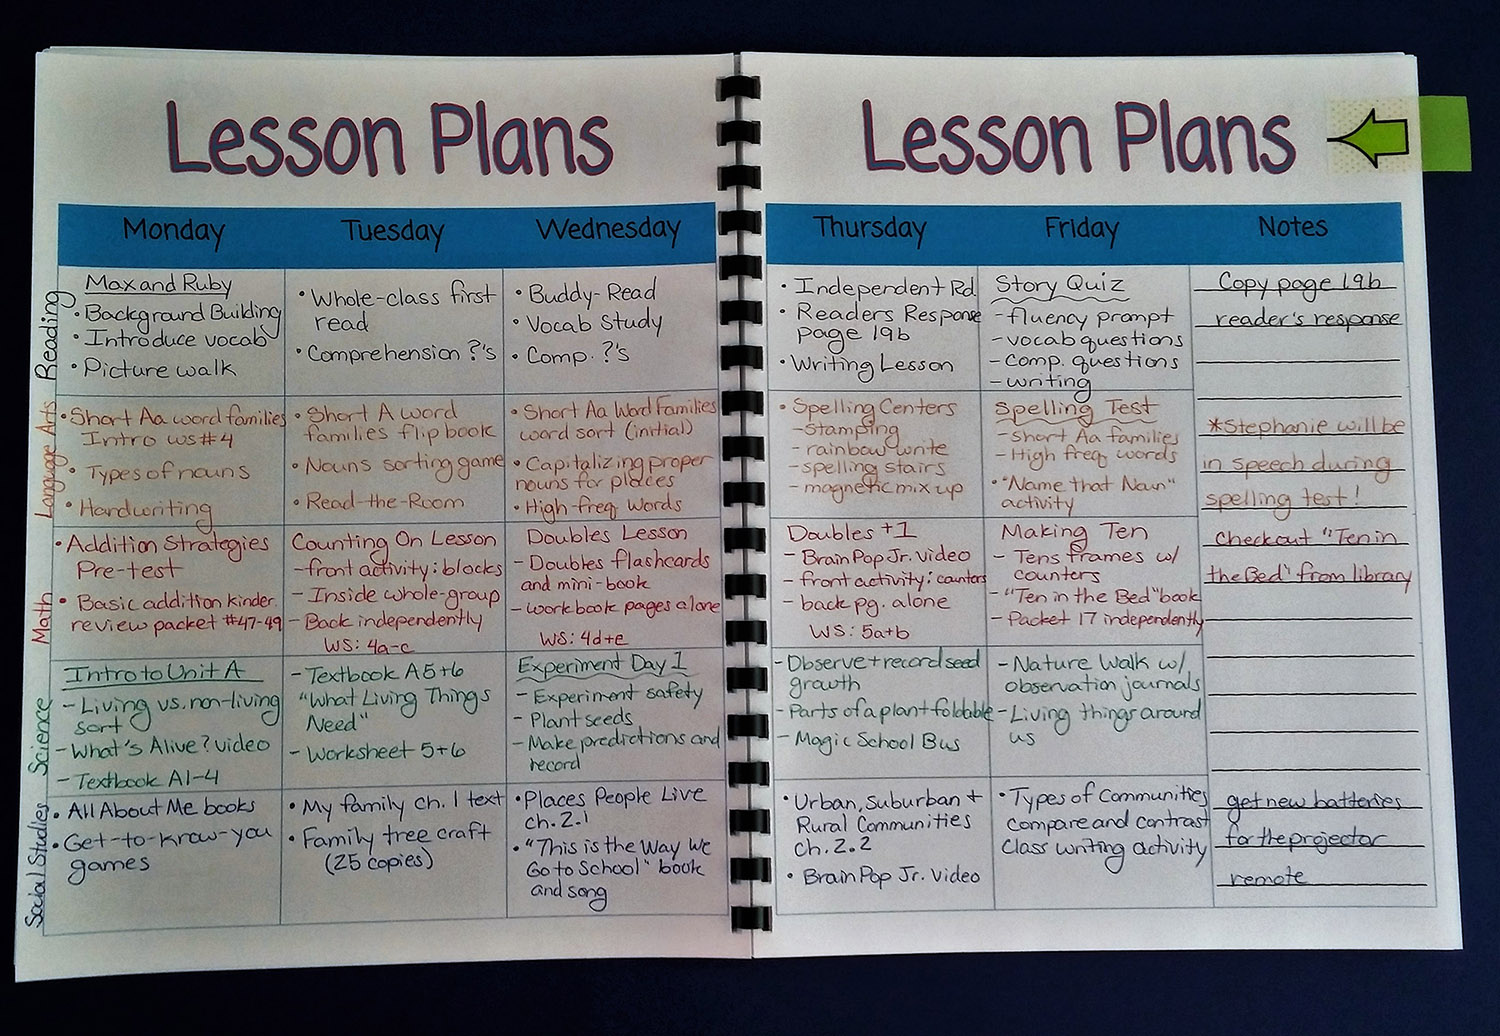 Lesson Plans
Monday
Tuesday
Wednesday
Reading
Max and Ruby
• Background Building
• Introduce vocab
• Picture walk
• Whole-class first
read
• Comprehension ?'s
• Buddy-Read
• Vocab Study
• Comp. ?'s
Language Arts
• Short Aa word families
Intro ws#4
• Types of nouns
• Handwriting
• Short A word
families flip book
• Nouns sorting game
• Read-the-Room
• Short Aa Word Families
word sort (initial)
• Capitalizing proper
nouns for places
• High-freq words
Math
• Addition Strategies
Pre-test
• Basic addition kinder.
review packet #47-49
Counting On Lesson
- front activity: blocks
- Inside whole-group
- Back independently
WS: 4a-c
Doubles Lesson
- Doubles flashcards
and mini-book
- workbook pages alone
WS: 4d+e
Science
Intro to Unit A
- Living vs. non-living
sort
- What's Alive? video
- Textbook A1-4
- Textbook A5+6
"What Living Things
Need"
- Worksheet 5+6
Experiment Day 1
- Experiment safety
- Plant seeds
- Make predictions and
record
Social Studies
• All About Me books
• Get-to-know-you
games
• My family ch. 1 text
• Family tree craft
(25 copies)
• Places People Live
ch. 2.1
• "This is the Way We
Go to School" book
and song
Lesson Plans
Thursday
Friday
Notes
• Independent Rd.
• Readers Response
page 19b
• Writing Lesson
Story Quiz
- fluency prompt
- vocab questions
- comp. questions
- writing
Copy page 19b
reader's response
• Spelling Centers
- stamping
- rainbow write
- spelling stairs
- magnetic mix up
Spelling Test
- short Aa families
- High freq words
• "Name that Noun"
activity
*Stephanie will be
in speech during
spelling test!
Doubles +1
- BrainPop Jr. video
- front activity: counters
- back pg. alone
WS: 5a+b
Making Ten
- Tens frames w/
counters
- "Ten in the Bed" book
- Packet 17 independently
Checkout "Ten in
the Bed" from library
- Observe + record seed
growth
- Parts of a plant foldable
- Magic School Bus
- Nature Walk w/
observation journals
- Living things around
us
• Urban, Suburban +
Rural Communities
ch. 2.2
• BrainPop Jr. Video
• Types of Communities
compare and contrast
class writing activity
get new batteries
for the projector
remote